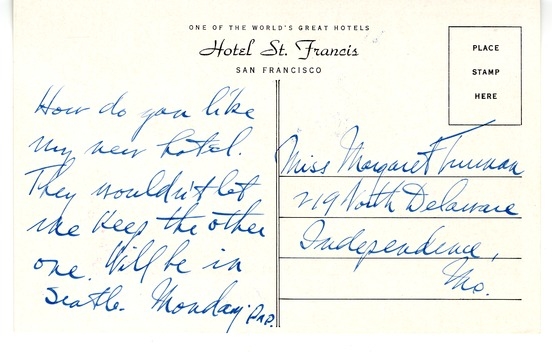 ONE OF THE WORLD'S GREAT HOTELS
Hotel St. Francis
SAN FRANCISCO
PLACE
STAMP
HERE
How do you like
my new hotel.
They wouldn't let
me keep the other
one. Will be in
Seattle. Monday.
Dad.
Miss Margaret Truman
219 North Delaware
Independence,
Mo.